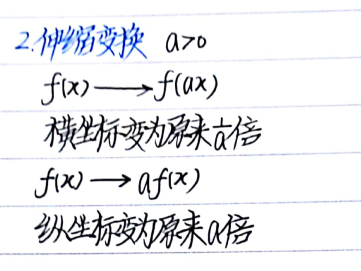 2.伸缩变换 a>0
f(x)⟶f(ax)
横坐标变为原来1/a倍
f(x)⟶af(x)
纵坐标变为原来a倍